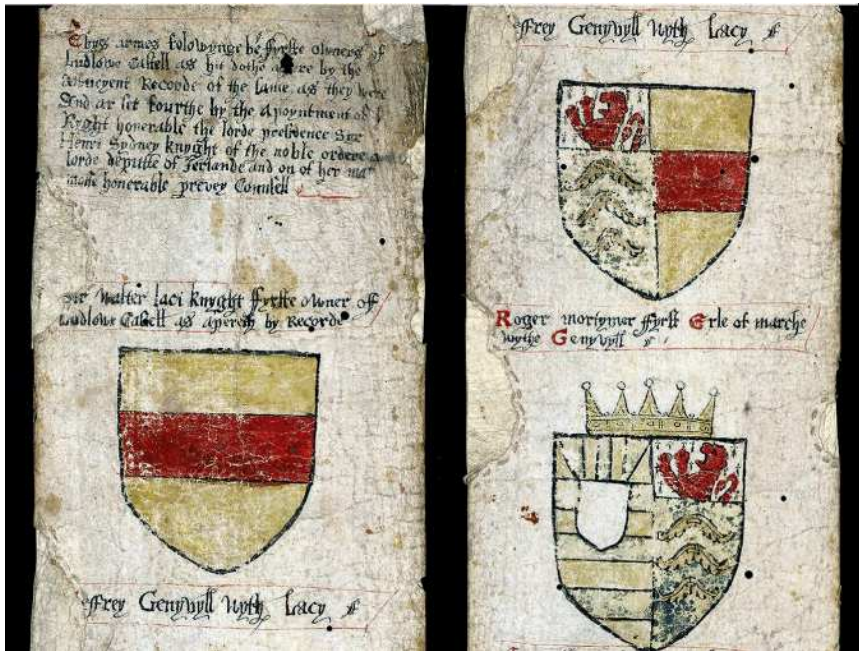 Thys armes folowynge be fyrste owners of
Ludlowe Castell as hit dothe apere by the
Auncyent Recorde of the same as they were
And ar set fourthe by the Apoyntment of
Ryght honerable the lorde presedence Sur
Henri Sydney knyght of the noble ordere
lorde depute of Ierlande and on of her
maste honerable prevey Counsell
Sir Walter laci knyght fyrste owner off
Ludlowe Castell as aperith by Recorde
effrey Genyvyll wyth Lacy
effrey Genyvyll wyth Lacy
Roger mortymer fyrst Erle of marche
wythe Genyvyll